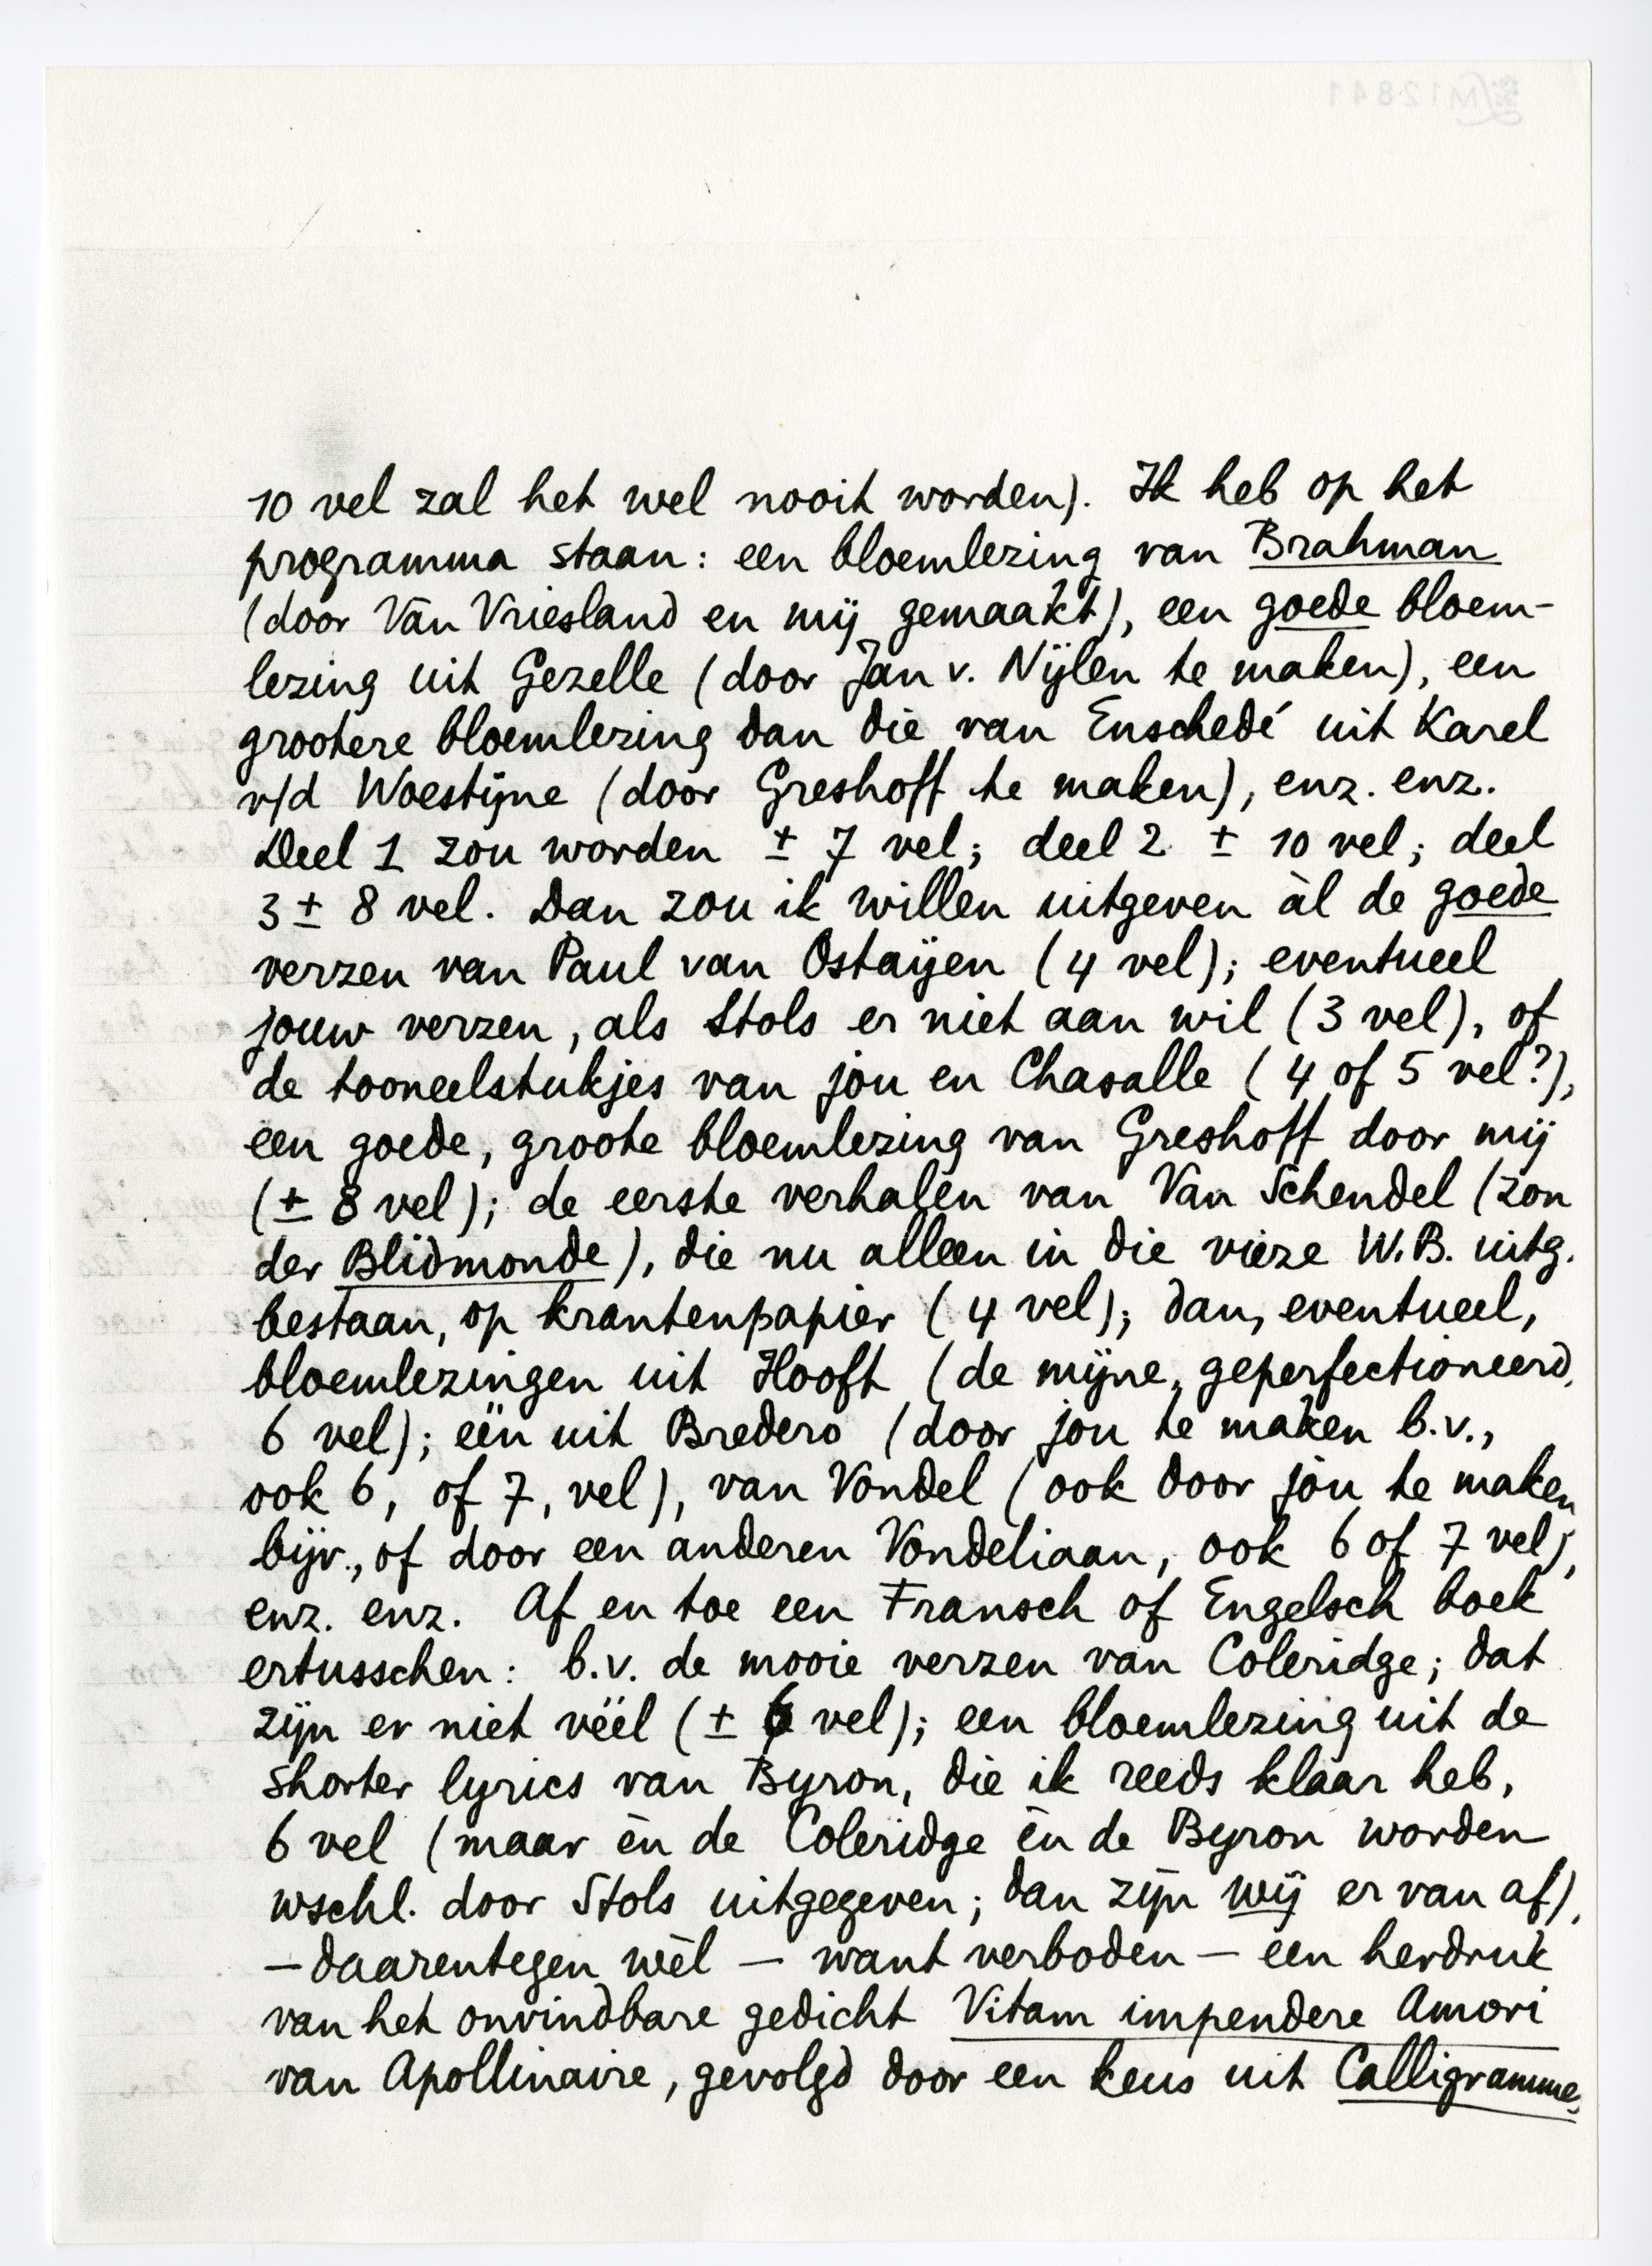 10 vel zal het wel nooit worden). Ik heb op het
programma staan: een bloemlezing van Brahman
(door Van Vriesland en mij gemaakt), een goede bloem-
lezing uit Gezelle (door Jan v. Nijlen te maken), een
grootere bloemlezing dan die van Enschedé uit Karel
v/d Woestijne (door Greshoff te maken), enz. enz.
Deel 1 zou worden ± 7 vel; deel 2 ± 10 vel; deel
3 ± 8 vel. Dan zou ik willen uitgeven àl de goede
verzen van Paul van Ostaijen (4 vel); eventueel
jouw verzen, als Stols er niet aan wil (3 vel), of
de tooneelstukjes van jou en Chasalle (4 of 5 vel?),
een goede, groote bloemlezing van Greshoff door mij
(± 8 vel); de eerste verhalen van Van Schendel (zon
der Blidmonde), die nu alleen in die vieze W.B. uitg.
bestaan, op krantenpapier (4 vel); dan, eventueel,
bloemlezingen uit Hooft (de mijne, geperfectioneerd,
6 vel); één uit Bredero (door jou te maken b.v.,
ook 6, of 7, vel), van Vondel (ook door jou te maken
bijv., of door een anderen Vondeliaan, ook 6 of 7 vel),
enz. enz. Af en toe een Fransch of Engelsch boek
ertusschen: b.v. de mooie verzen van Coleridge; dat
zijn er niet véél (± 6 vel); een bloemlezing uit de
shorter lyrics van Byron, die ik reeds klaar heb,
6 vel (maar èn de Coleridge èn de Byron worden
wschl. door Stols uitgegeven; dan zijn wij er van af),
— daarentegen wèl — want verboden — een herdruk
van het onvindbare gedicht Vitam impendere Amori
van Apollinaire, gevolgd door een keus uit Calligramme,